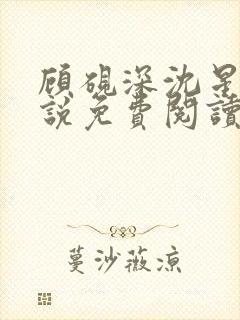 顧硯深沈星
說免費閱讀
蔓沙薇涼